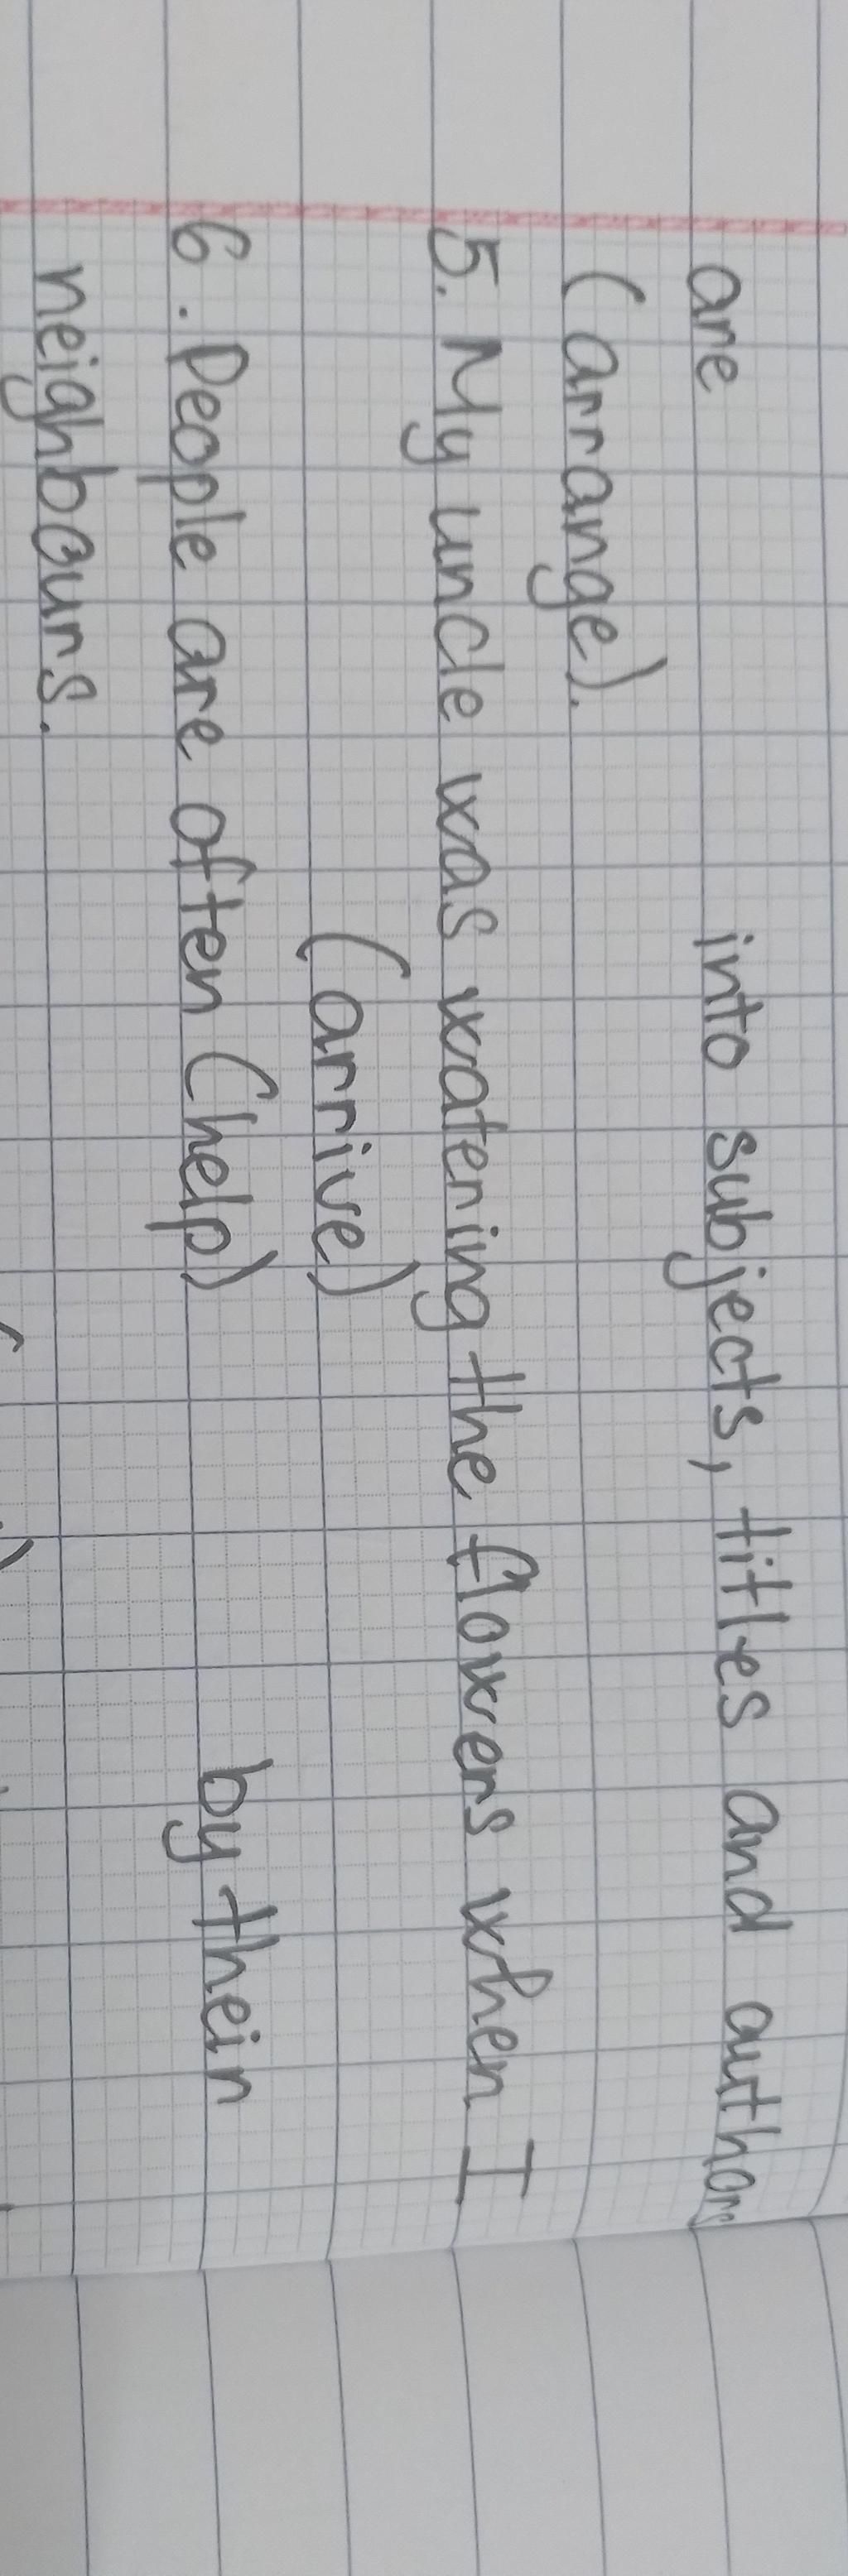 are into subjects, titles and authors
(arrange).
5. My uncle was watering the flowers when I
(arrive)
6. People are often (help) by their
neighbours.